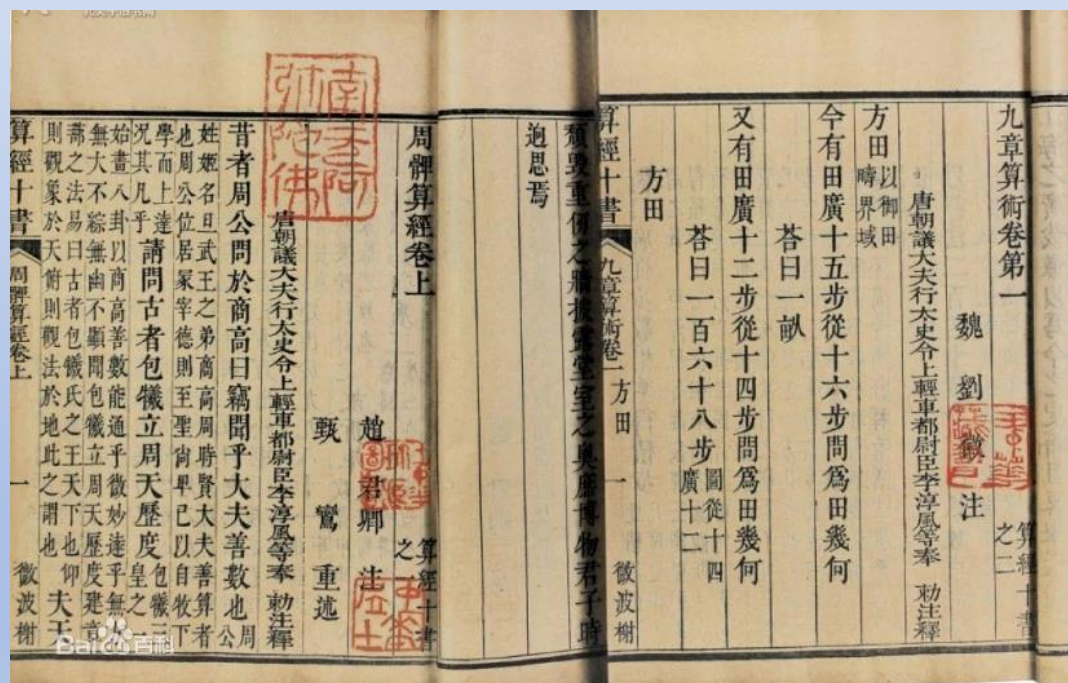 九章算術卷第一
算經十書
之二
魏 劉徽 注
唐朝議大夫行太史令上輕車都尉臣李淳風等奉 勑注釋
方田以御田
疇界域
今有田廣十五步從十六步問爲田幾何
荅曰一畝
又有田廣十二步從十四步問爲田幾何
荅曰一百六十八步圖從十四
廣十二
方田
算經十書 九章算術卷一 方田 一 微波榭
頹毀重仞之牆披露堂室之奧庶博物君子時
迥思焉
周髀算經卷上
算經十書
之一
趙君卿 注
甄鸞 重述
唐朝議大夫行太史令上輕車都尉臣李淳風等奉 勑注釋
昔者周公問於商高曰竊聞乎大夫善數也周
公
姓姬名旦武王之弟商高周時賢大夫善算者
也周公位居冢宰德則至聖尚卑己以自牧下
學而上達
況其凡乎請問古者包犧立周天歷度包犧三
皇之一
始畫八卦以商高善數能通乎微妙達乎無
無大不綜無幽不顯聞包犧立周天歷度建章
蔀之法易曰古者包犧氏之王天下也仰
則觀象於天俯則觀法於地此之謂也 夫天
算經十書 周髀算經卷上 一 微波榭
南无阿
弥陀佛
Bai 百科